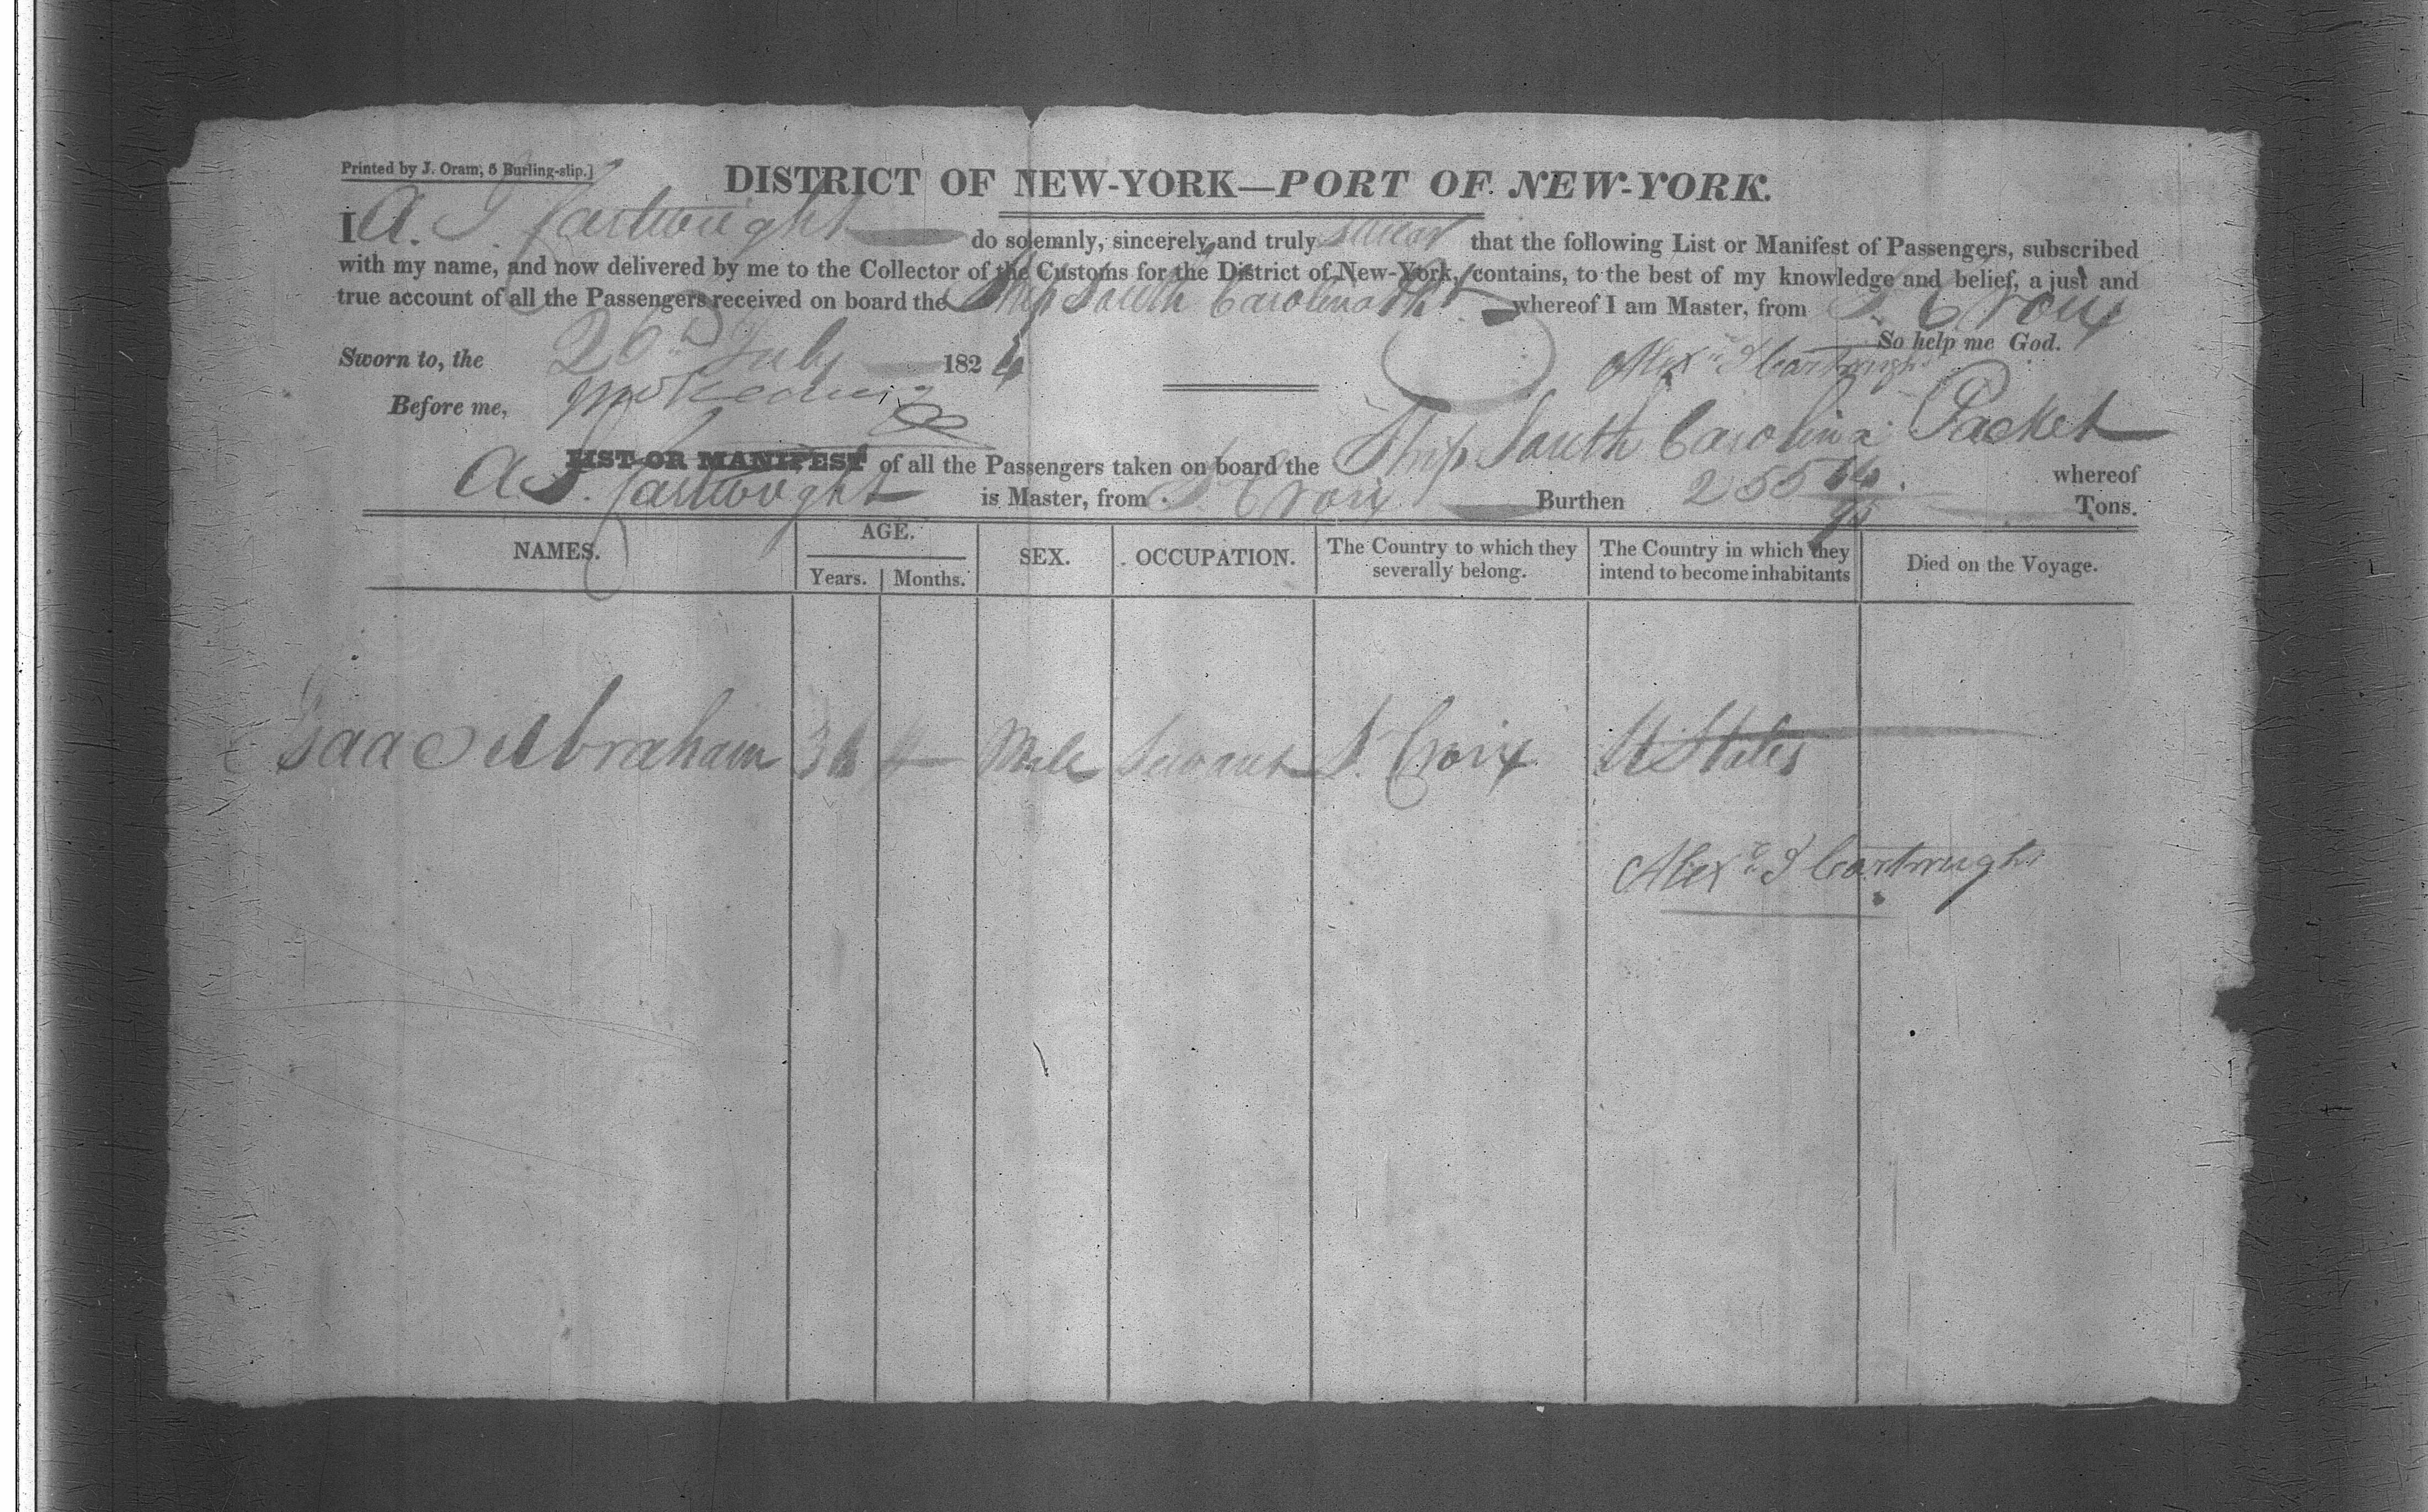 Printed by J. Oram, 5 Burling-slip.]
DISTRICT OF NEW-YORK—PORT OF NEW-YORK.
I A. J. Cartwright do solemnly, sincerely, and truly swear that the following List or Manifest of Passengers, subscribed
with my name, and now delivered by me to the Collector of the Customs for the District of New-York, contains, to the best of my knowledge and belief, a just and
true account of all the Passengers received on board the Ship South Carolina Pkt whereof I am Master, from St Croix
So help me God.
Sworn to, the 26th July 1824
Alexr J Cartwright
Before me,
LIST OR MANIFEST of all the Passengers taken on board the Ship South Carolina Packet whereof
A J. Cartwright is Master, from St Croix Burthen 255 Tons.
NAMES. AGE. SEX. OCCUPATION. The Country to which they severally belong. The Country in which they intend to become inhabitants Died on the Voyage.
Years. Months.
Isaac Abraham 36 Male Servant St Croix U States
Alexr J Cartwright